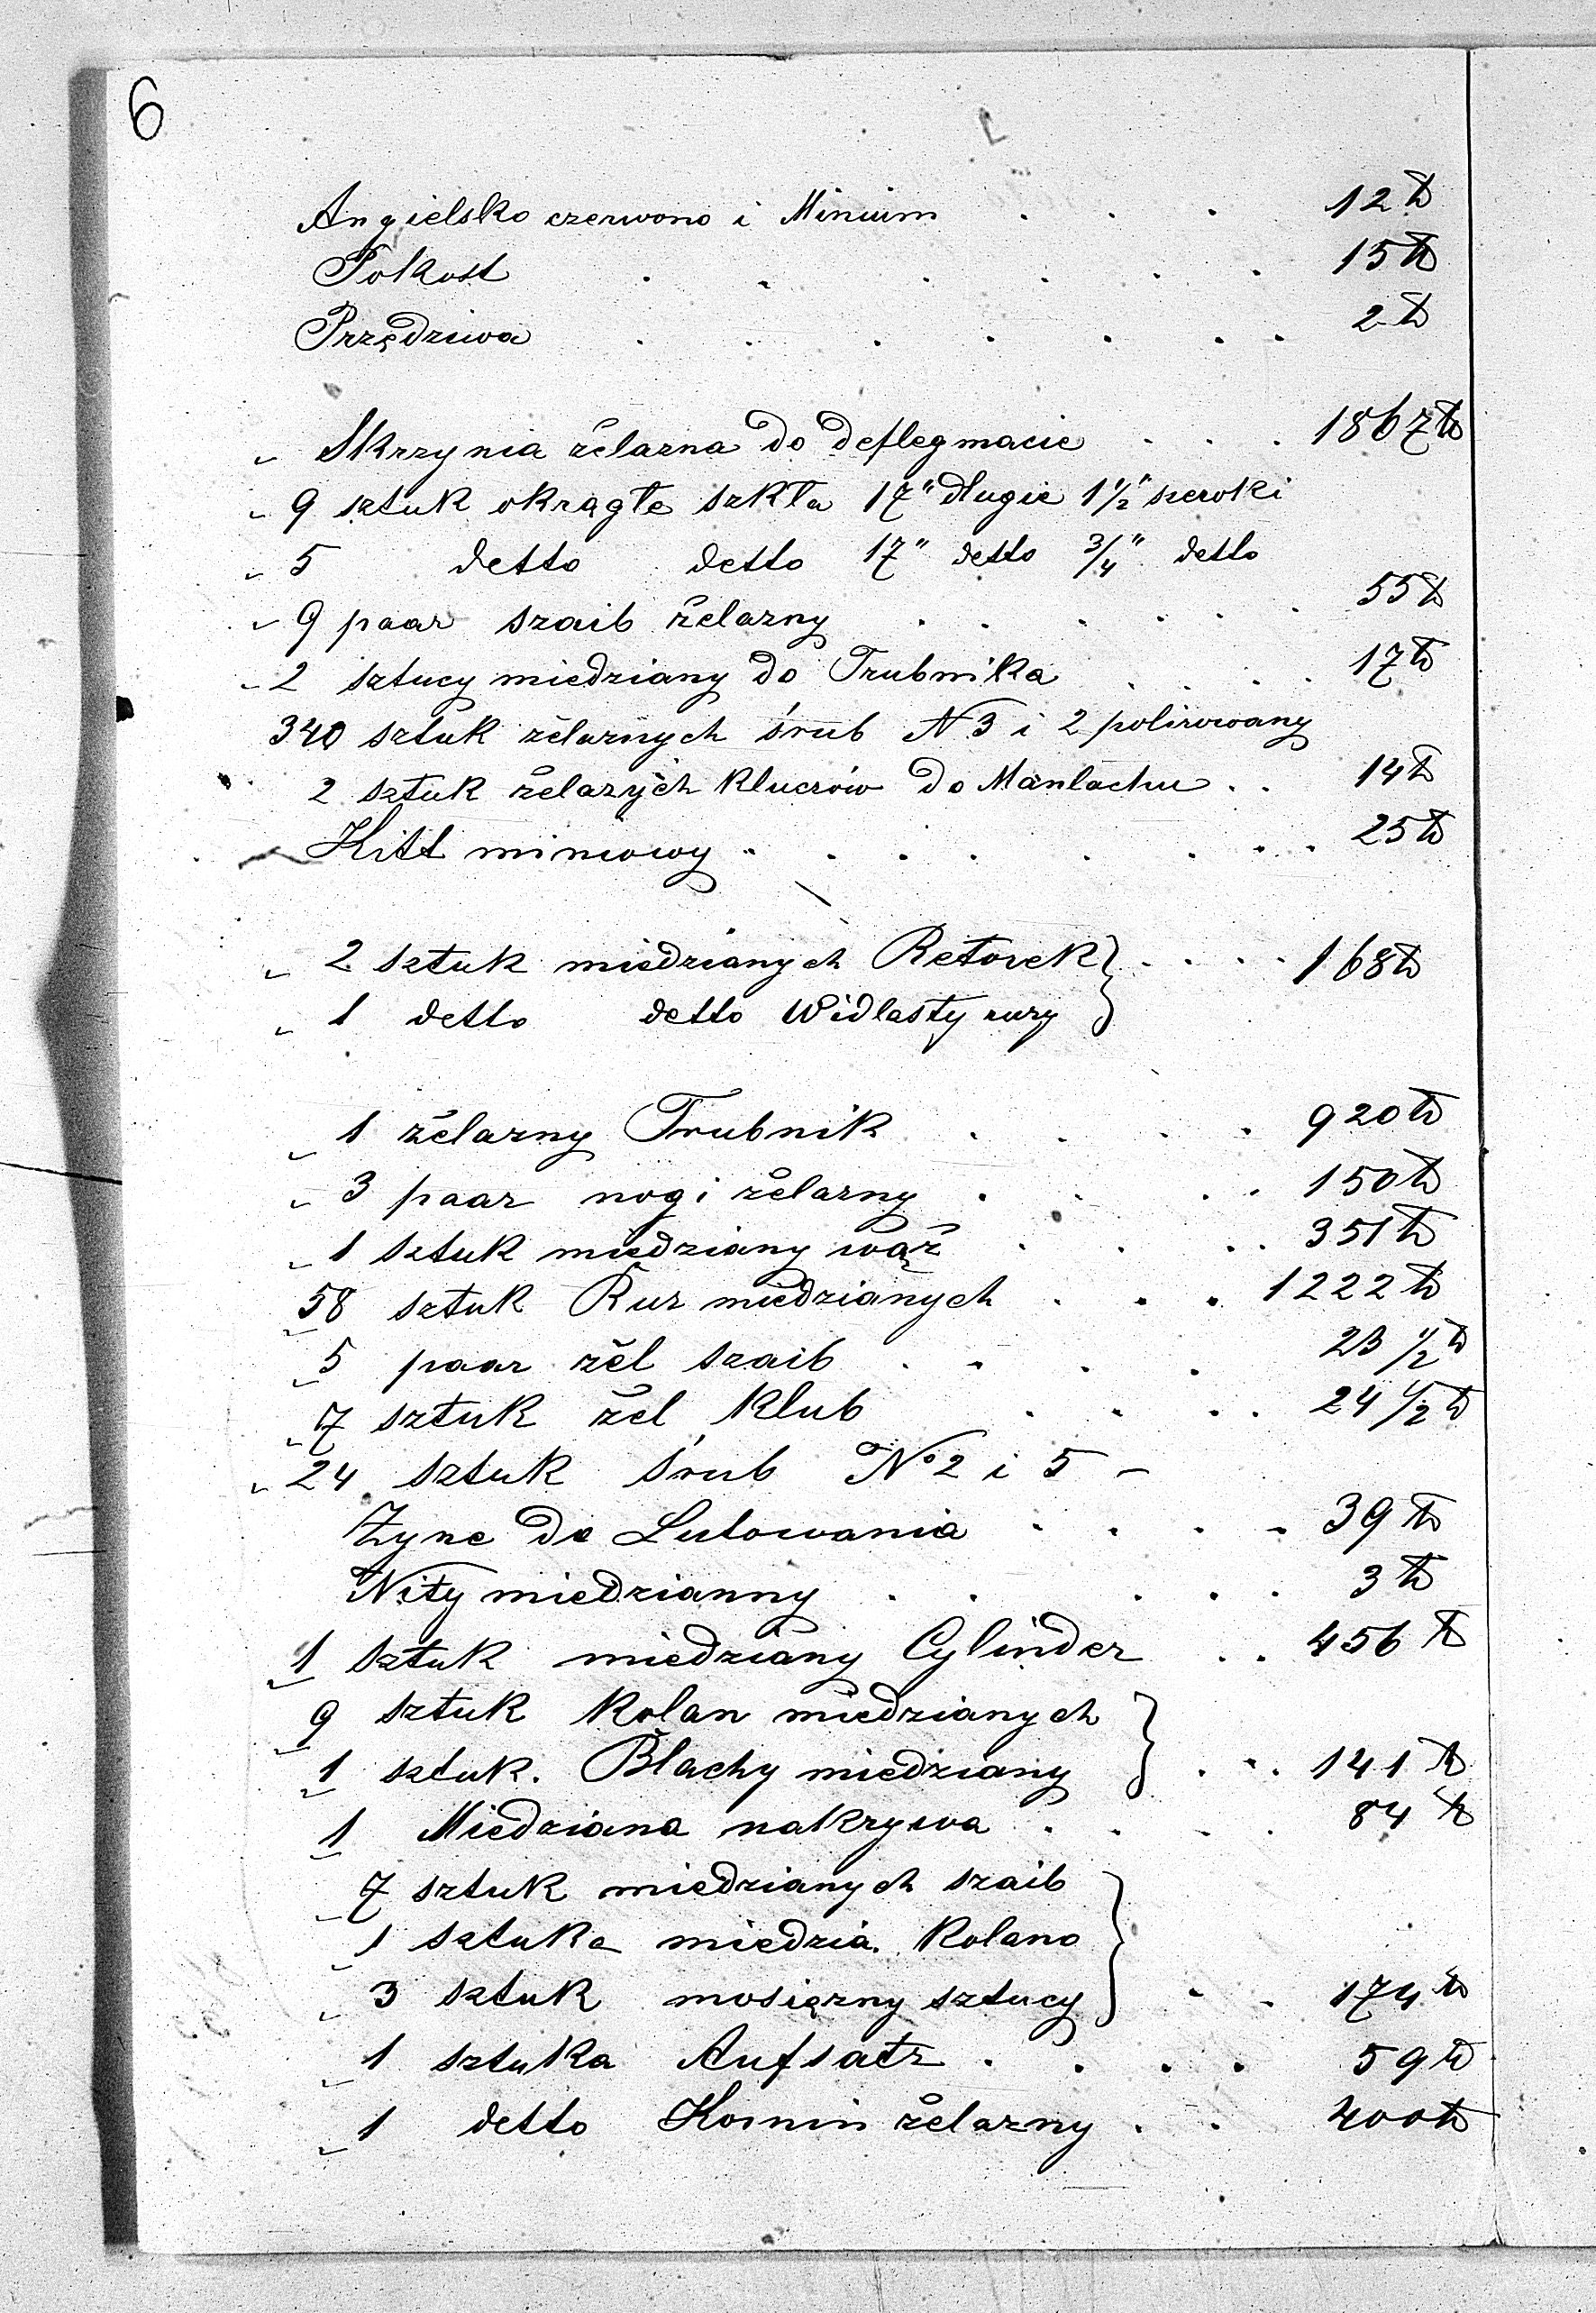 6
Angielsko czerwono i Minium . . . 12 ℔
Pokost . . . . . . 15 ℔
Przędziwa . . . . . . . 2 ℔
„ Skrzynia żelazna do deflegmacie . . . 1867 ℔
„ 9 sztuk okrągłe szkła 17" długie 1 1/2" szeroki
„ 5 detto detto 17" detto 3/4" detto
„ 9 paar szaib żelazny . . . . . . 55 ℔
„ 2 sztucy miedziany do Trubnika . . . . 17 ℔
340 sztuk żelaznych śrub N 3 i 2 polirowany
2 sztuk żelazych kluczów do Manlachu . . 14 ℔
Kitt miniowy . . . . . . . . 25 ℔
„ 2 sztuk miedzianych Retorek } . . . . 168 ℔
„ 1 detto detto Widlasty rury }
„ 1 żelazny Trubnik . . . . 920 ℔
„ 3 paar nogi żelazny . . . . 150 ℔
„ 1 sztuk miedziany wąż . . . . 351 ℔
„ 58 sztuk Rur miedzianych . . . 1222 ℔
„ 5 paar żel szaib . . . . 23 1/2 ℔
„ 7 sztuk żel klub . . . . 24 1/2 ℔
„ 24 sztuk śrub No 2 i 5 –
Zyne do Lutowania . . . . 39 ℔
Nity miedzianny . . . . . 3 ℔
„ 1 sztuk miedziany Cylinder . . 456 ℔
„ 9 sztuk Kolan miedzianych }
„ 1 sztuk. Blachy miedziany } . . . 141 ℔
„ 1 Miedziana nakrywa . . . . 84 ℔
„ 7 sztuk miedzianych szaib }
„ 1 sztuka miedzia. Kolano }
„ 3 sztuk mosiężny sztucy } . . 174 ℔
„ 1 sztuka Aufsatz . . . . 59 ℔
„ 1 detto Komin żelazny . . 400 ℔